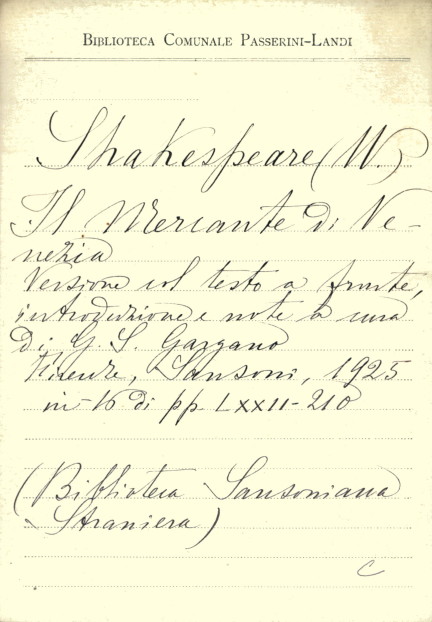 BIBLIOTECA COMUNALE PASSERINI-LANDI
Shakespeare (W.)
Il Mercante di Ve-
nezia
Versione col testo a fronte,
introduzione e note a cura
di G. S. Gargano
Firenze, Sansoni, 1925
in-16 di pp. LXXII-210
(Biblioteca Sansoniana
Straniera)
C